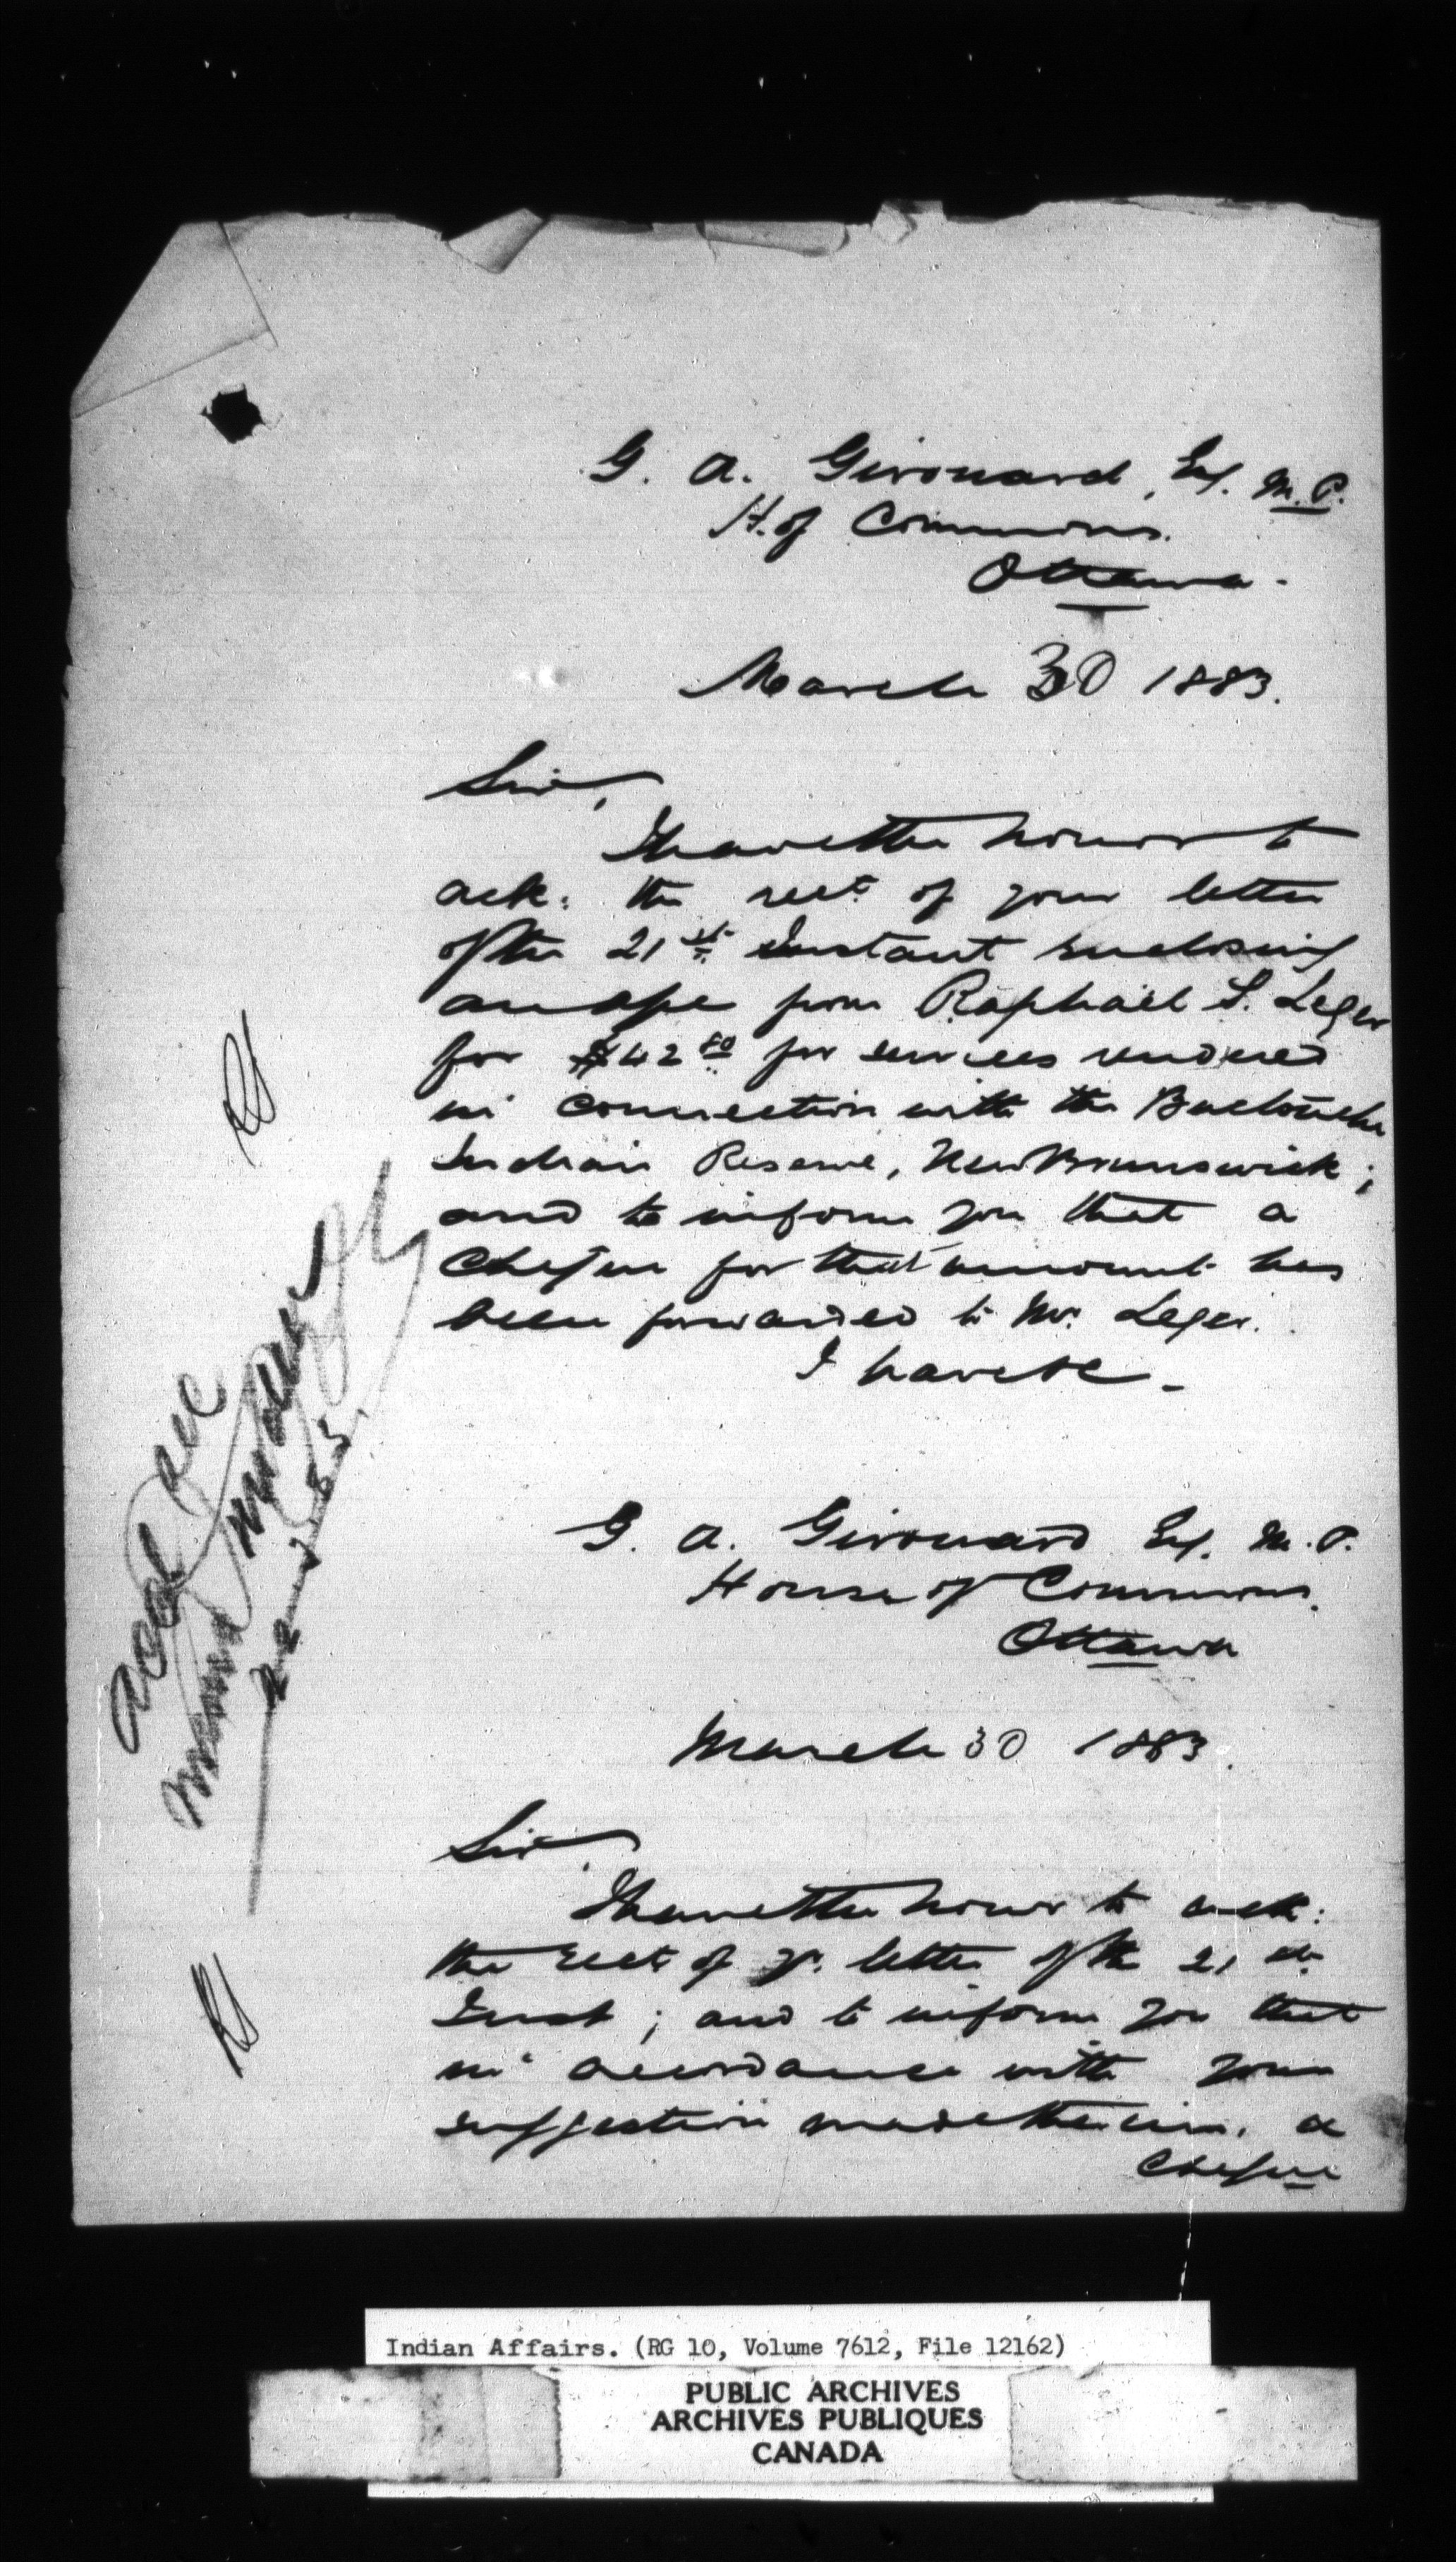 G. A. Girouard, Esq. M.P.
H. of Commons.
Ottawa.
March 30 1883.
Sir,
I have the honor to
ack: the rect. of your letter
of the 21st. Instant enclosing
an a/c from Raphael S. Leger
for $42 80 for services rendered
in connection with the Buctouche
Indian Reserve, New Brunswick;
and to inform you that a
cheque for that amount has
been forwarded to Mr. Leger.
I have &c -
G. A. Girouard Esq. M.P.
House of Commons.
Ottawa
March 30 1883.
Sir,
I have the honor to ack:
the rect of yr. letter of the 21 st.
Inst; and to inform you that
in accordance with your
suggestion made therein, a
cheque
Indian Affairs. (RG 10, Volume 7612, File 12162)
PUBLIC ARCHIVES
ARCHIVES PUBLIQUES
CANADA